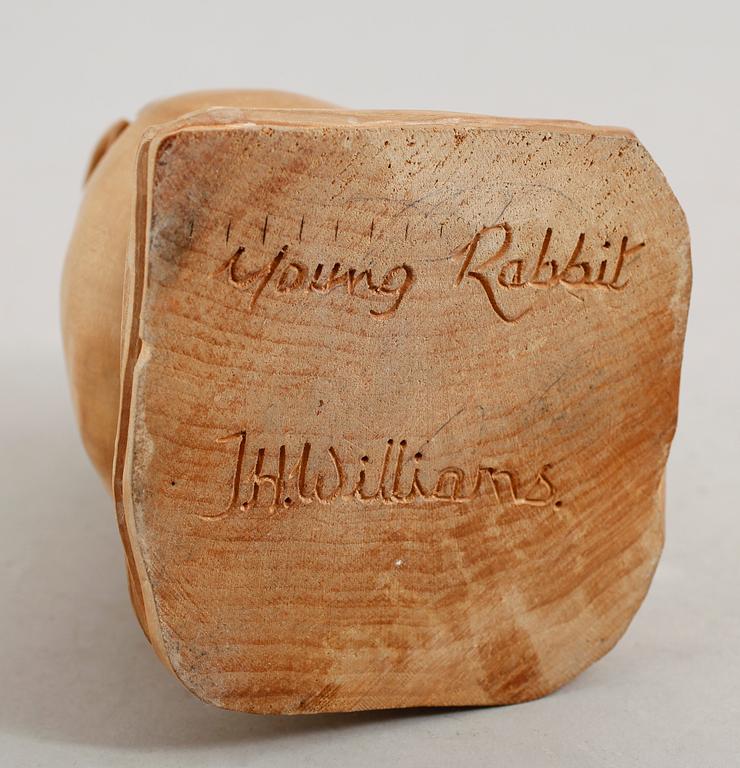 Young Rabbit
J.H.Williams.